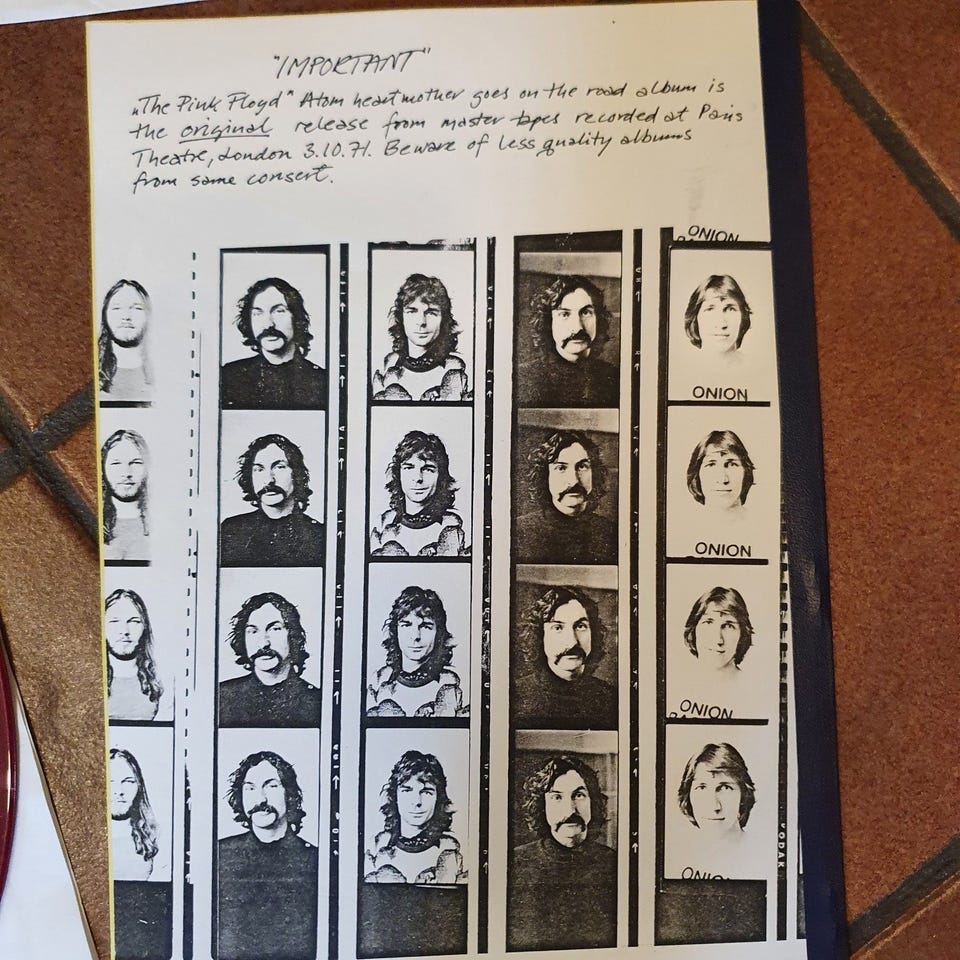 "IMPORTANT"
„The Pink Floyd" Atom heartmother goes on the road album is
the original release from master tapes recorded at Paris
Theatre, London 3.10.71. Beware of less quality albums
from same consert.
ONION
ONION
ONION
ONION
ONION
KODAK